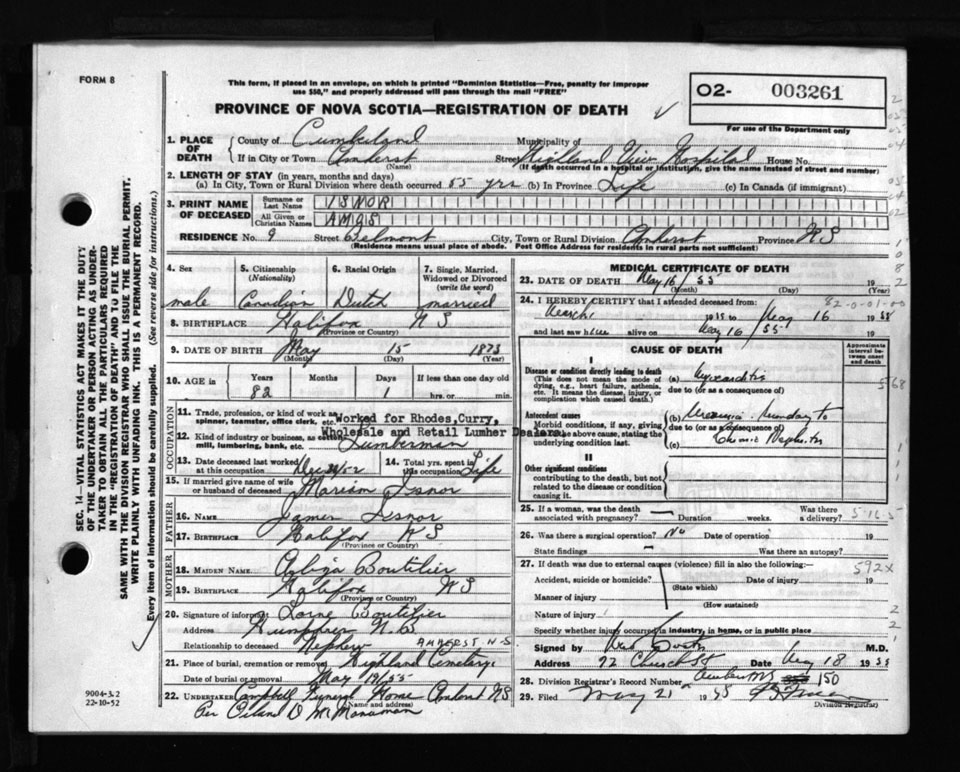 FORM 8
This form, if placed in an envelope, on which is printed "Dominion Statistics—Free, penalty for improper
use $50," and properly addressed will pass through the mail "FREE"
PROVINCE OF NOVA SCOTIA—REGISTRATION OF DEATH
O2- 003261
For use of the Department only
1. PLACE OF DEATH
County of Cumberland Municipality of
If in City or Town Amherst Street Highland View Hospital House No.
(Name) (If death occurred in a hospital or institution, give the name instead of street and number)
2. LENGTH OF STAY (in years, months and days)
(a) In City, Town or Rural Division where death occurred 55 yrs (b) In Province Life (c) In Canada (if immigrant)
3. PRINT NAME OF DECEASED
Surname or Last Name
All Given or Christian Names
RESIDENCE No. 9 Street Belmont City, Town or Rural Division Amherst Province N S
(Residence means usual place of abode. Post Office Address for residents in rural parts not sufficient)
4. Sex
male
5. Citizenship (Nationality)
Canadian
6. Racial Origin
Dutch
7. Single, Married, Widowed or Divorced (write the word)
married
8. BIRTHPLACE Halifax N S
(Province or Country)
9. DATE OF BIRTH May 15 1873
(Month) (Day) (Year)
10. AGE in
Years 82
Months
Days 1
If less than one day old
hrs. or min.
OCCUPATION
11. Trade, profession, or kind of work as
spinner, teamster, office clerk, etc. Worked for Rhodes, Curry,
Wholesale and Retail Lumber Dealers
12. Kind of industry or business, as cotton
mill, lumbering, bank, etc. Lumberman
13. Date deceased last worked
at this occupation
14. Total yrs. spent in
this occupation Life
15. If married give name of wife
or husband of deceased Marion Isnor
FATHER
16. NAME James Isnor
17. BIRTHPLACE Halifax N S
(Province or Country)
MOTHER
18. MAIDEN NAME Boutilier
19. BIRTHPLACE Halifax N S
(Province or Country)
20. Signature of informant Lorne Boutilier
Address N. B.
Relationship to deceased Nephew AMHERST N-S
21. Place of burial, cremation or removal Highland Cemetery
Date of burial or removal May 19/55
22. UNDERTAKER Campbell Funeral Home Amherst NS
(Name and address)
Per
MEDICAL CERTIFICATE OF DEATH
23. DATE OF DEATH May 16/55 19
(Month) (Day) (Year)
24. I HEREBY CERTIFY that I attended deceased from:
19 55 to May 16 19 55
and last saw h alive on May 16 /55 19
CAUSE OF DEATH
Approximate interval between onset and death
I
Disease or condition directly leading to death
(This does not mean the mode of dying, e.g., heart failure, asthenia, etc. It means the disease, injury, or complication which caused death.)
(a) Myocarditis
due to (or as a consequence of)
Antecedent causes
Morbid conditions, if any, giving rise to the above cause, stating the underlying condition last.
(b) Uremia secondary to
due to (or as a consequence of)
(c) Chronic Nephritis
II
Other significant conditions
contributing to the death, but not related to the disease or condition causing it.
25. If a woman, was the death
associated with pregnancy? Duration weeks. Was there a delivery?
26. Was there a surgical operation? No Date of operation 19
State findings Was there an autopsy?
27. If death was due to external causes (violence) fill in also the following:-
592X
Accident, suicide or homicide? Date of injury 19
(State which)
Manner of injury
(How sustained)
Nature of injury
Specify whether injury occurred in industry, in home, or in public place
Signed by M.D.
Address 92 Church St Date May 18 19 55
28. Division Registrar's Record Number 150
29. Filed May 21 19 55
Division Registrar
SEC. 14—VITAL STATISTICS ACT MAKES IT THE DUTY
OF THE UNDERTAKER OR PERSON ACTING AS UNDER-
TAKER TO OBTAIN ALL THE PARTICULARS REQUIRED
IN THE "REGISTRATION OF DEATH" AND TO FILE THE
SAME WITH THE DIVISION REGISTRAR WHO SHALL ISSUE THE BURIAL PERMIT.
WRITE PLAINLY WITH UNFADING INK. THIS IS A PERMANENT RECORD.
Every item of information should be carefully supplied. (See reverse side for instructions.)
9004-3.2
22-10-52